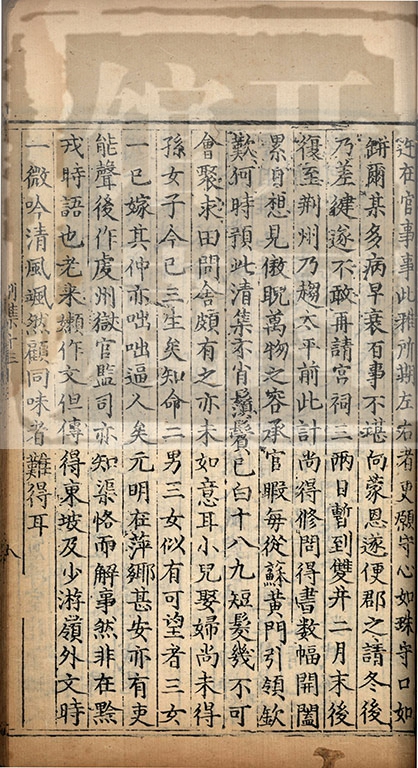 在官事事此雅所期左右者更願守心如珠守口如
缾爾某多病早衰百事不堪向蒙恩遂便郡之請冬後
乃差健遂不敢再請宮祠三兩日暫到雙井二月末後
復至荆州乃趨太平前此計尚得修問得書数幅開闔
累日想見傲睨萬物之容承官暇每從蘇黄門引領欽
歎何時預此清集亦肯鬚鬢已白十八九短髮幾不可
會聚求田問舍頗有之亦未如意耳小兒娶婦尚未得
孫女子今已三生矣知命二男三女似有可望者三女
一已嫁其仲亦咄咄逼人矣元明在萍鄉甚安亦有吏
能聲後作虔州獄官監司亦知渠恪而解事然非在黔
戎時語也老来嬾作文但傳得東坡及少游嶺外文時
一微吟清風颯然顧同味者難得耳